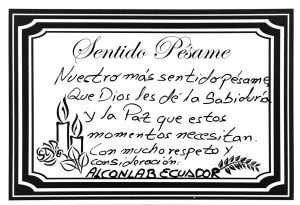 Sentido Pésame
Nuestro más sentido pésame,
Que Dios les dé la Sabiduría
y la Paz que estos
momentos necesitan.
Con mucho respeto y
consideración:
ALCONLAB ECUADOR